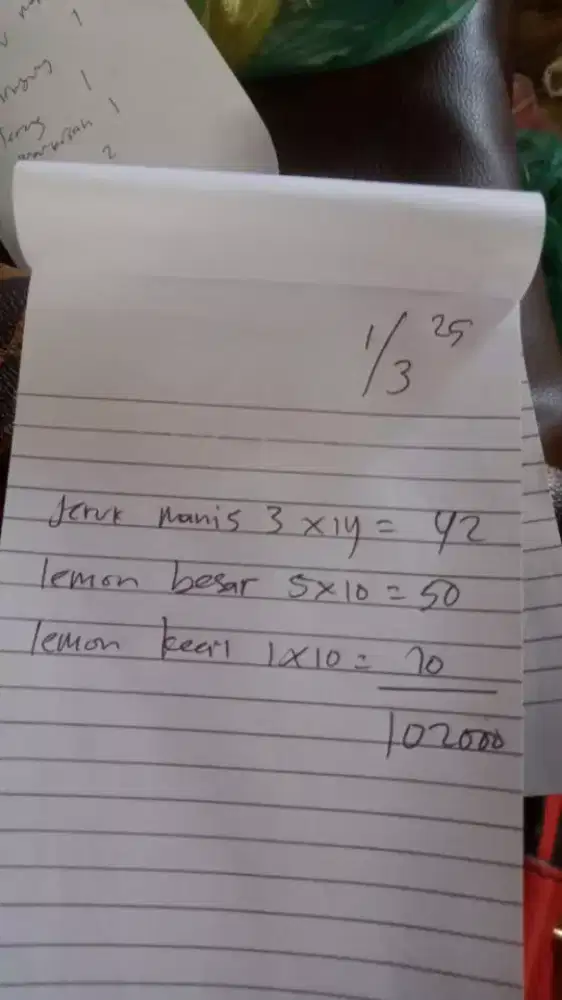 1
1
1
2
1/3 25
Jeruk manis 3 x 14 = 42
lemon besar 5 x 10 = 50
lemon kecil 1 x 10 = 10
102000